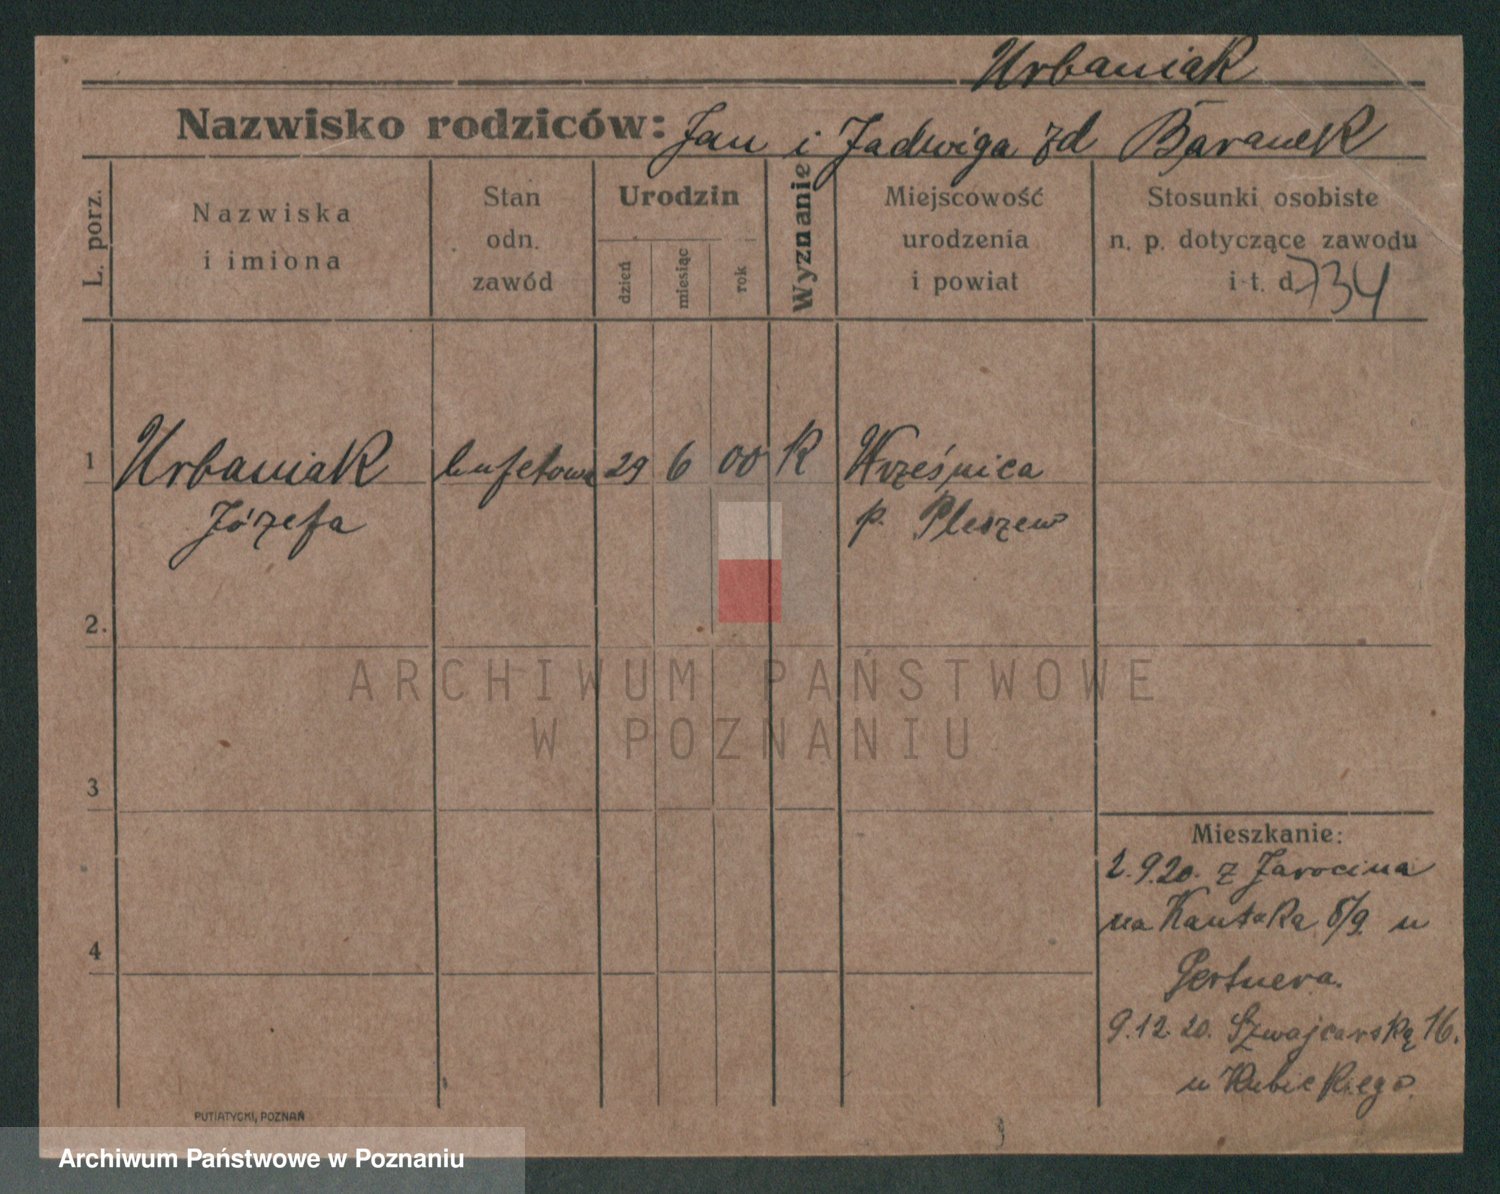 Urbaniak
Nazwisko rodziców: Jan i Jadwiga zd Baranek
L. porz.
Nazwiska
i imiona
Stan
odn.
zawód
Urodzin
dzień
miesiąc
rok
Wyznanie
Miejscowość
urodzenia
i powiat
Stosunki osobiste
n. p. dotyczące zawodu
i t. d. 734
1 Urbaniak bufetowa 29 6 00 K Wrześnica
Józefa p. Pleszew
2.
ARCHIWUM PAŃSTWOWE
W POZNANIU
3
Mieszkanie:
2.9.20. z Jarocina
na Kantaka 8/9 u
Gertnera.
4
9.12.20. Szwajcarską 16.
u Kubickiego.
PUTIATYCKI, POZNAŃ
Archiwum Państwowe w Poznaniu